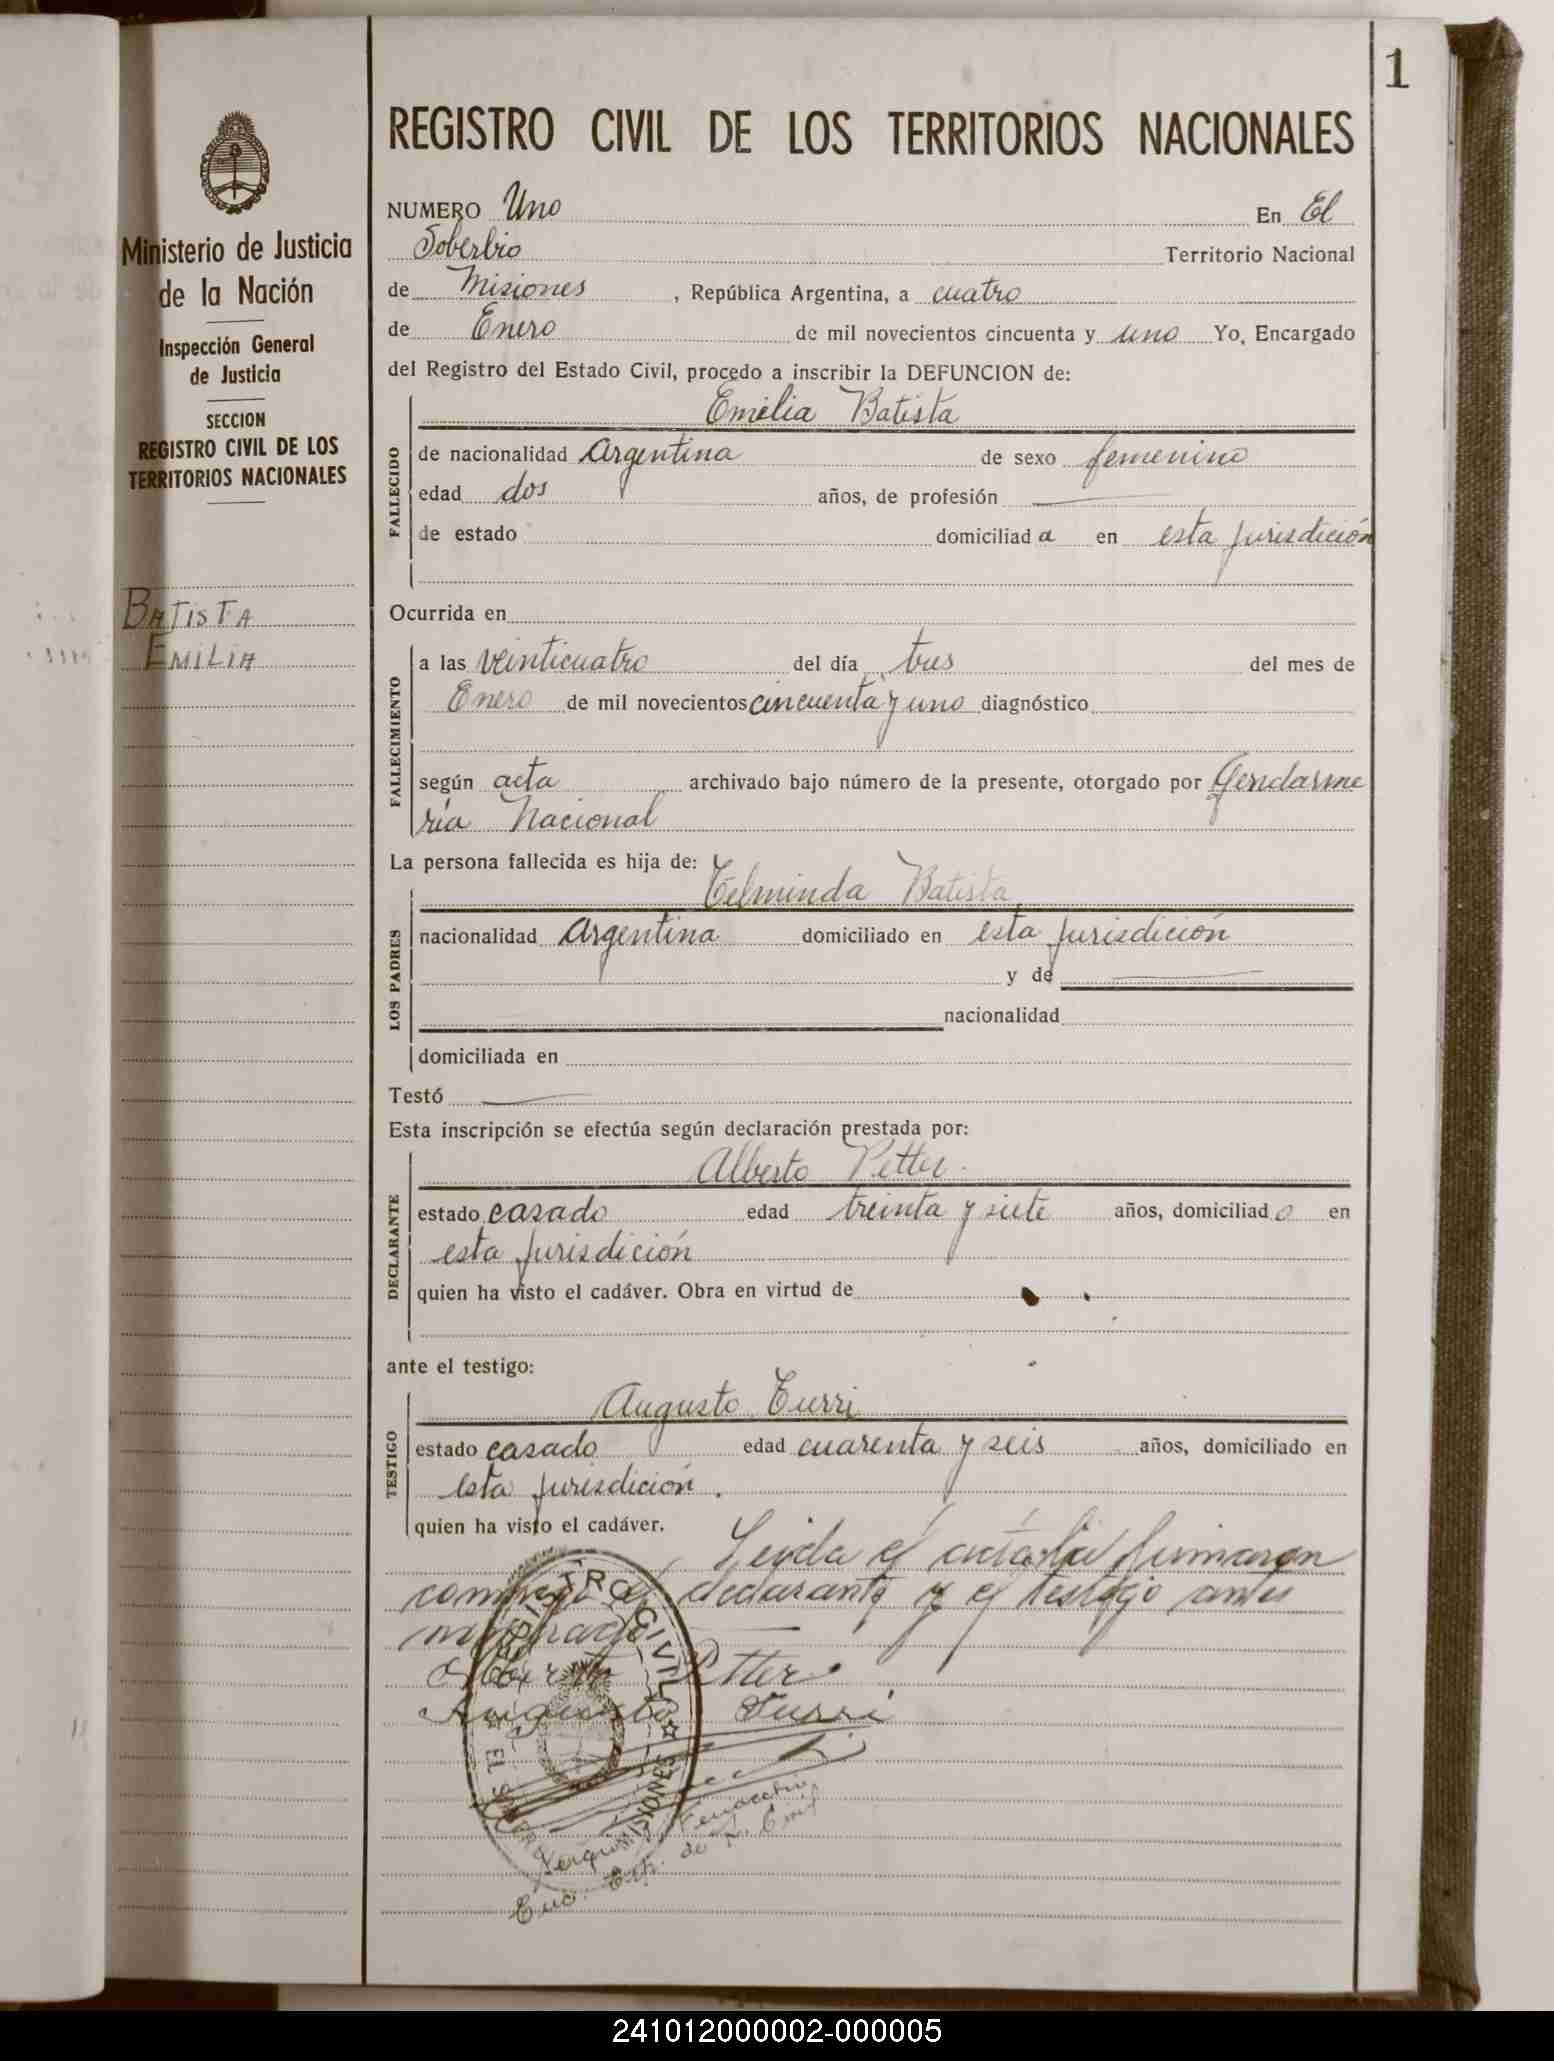 1
REGISTRO CIVIL DE LOS TERRITORIOS NACIONALES
Ministerio de Justicia
de la Nación
Inspección General
de Justicia
SECCION
REGISTRO CIVIL DE LOS
TERRITORIOS NACIONALES
BATISTA
EMILIA
NUMERO Uno En El
Soberbio Territorio Nacional
de Misiones, República Argentina, a cuatro
de Enero de mil novecientos cincuenta y uno Yo, Encargado
del Registro del Estado Civil, procedo a inscribir la DEFUNCION de:
Emilia Batista
FALLECIDO
de nacionalidad Argentina de sexo femenino
edad dos años, de profesión
de estado domiciliada en esta jurisdición
Ocurrida en
FALLECIMIENTO
a las veinticuatro del día tres del mes de
Enero de mil novecientos cincuenta y uno diagnóstico
según acta archivado bajo número de la presente, otorgado por Gendarme
ría Nacional
La persona fallecida es hija de:
Telminda Batista
LOS PADRES
nacionalidad Argentina domiciliado en esta jurisdición
y de
nacionalidad
domiciliada en
Testó
Esta inscripción se efectúa según declaración prestada por:
Alberto Petter.
DECLARANTE
estado casado edad treinta y siete años, domiciliado en
esta jurisdición
quien ha visto el cadáver. Obra en virtud de
ante el testigo:
Augusto Turri
TESTIGO
estado casado edad cuarenta y seis años, domiciliado en
esta jurisdición.
quien ha visto el cadáver.
Leida el acta la firmaron
conmigo el declarante y el testigo antes
Alberto Petter
Augusto Turri
REGISTRO CIVIL
EL SOBERBIO MISIONES
Enc. de R. Civil
241012000002-000005